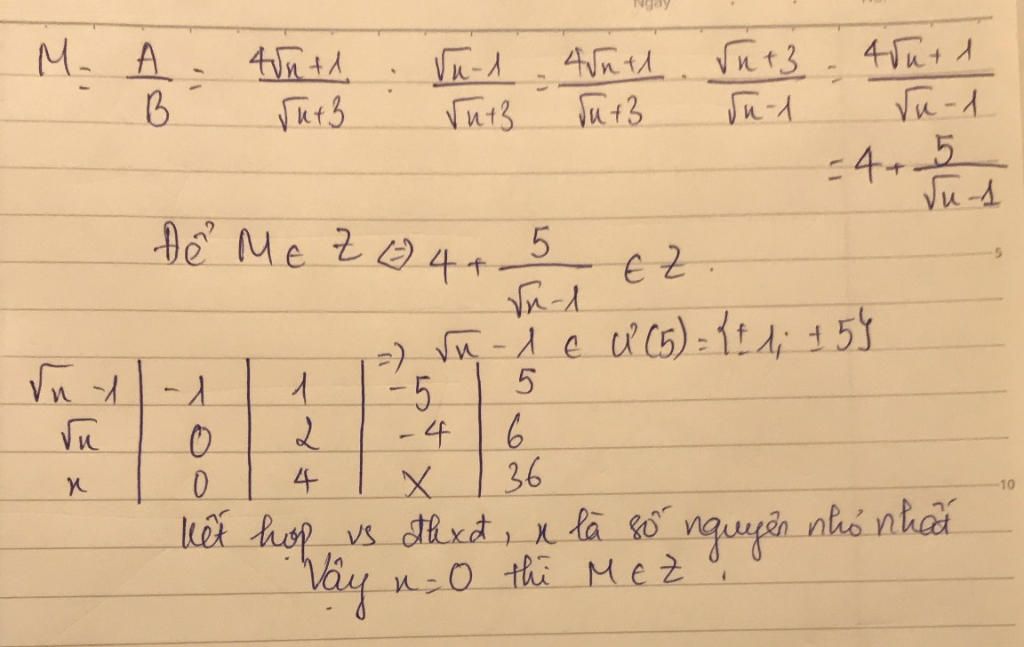 Ngày
M = A/B = (4√x+1)/(√x+3) : (√x-1)/(√x+3) = (4√x+1)/(√x+3) . (√x+3)/(√x-1) = (4√x+1)/(√x-1)
= 4 + 5/(√x-1)
Để M ∈ Z ⇔ 4 + 5/(√x-1) ∈ Z.
5
=> √x - 1 ∈ Ư(5) = {±1; ±5}
√x -1 | -1 | 1 | -5 | 5
√x | 0 | 2 | -4 | 6
x | 0 | 4 | X | 36
10
Kết hợp vs đkxđ, x là số nguyên nhỏ nhất
Vậy x=0 thì M ∈ Z.